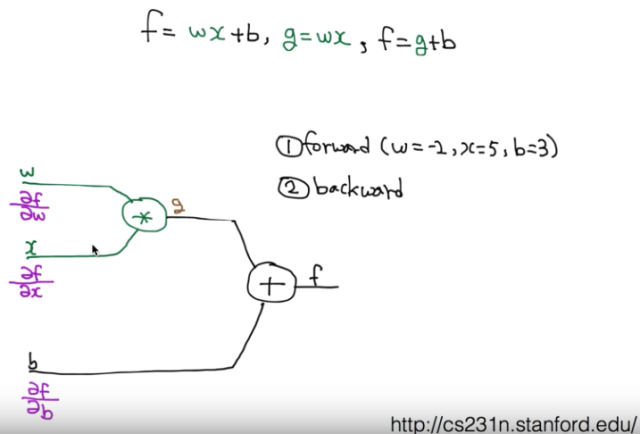 f= wx+b, g=wx, f=g+b
①forward (w=-2,x=5,b=3)
②backward
w
∂f/∂w
*
g
x
∂f/∂x
+
f
b
∂f/∂b
http://cs231n.stanford.edu/